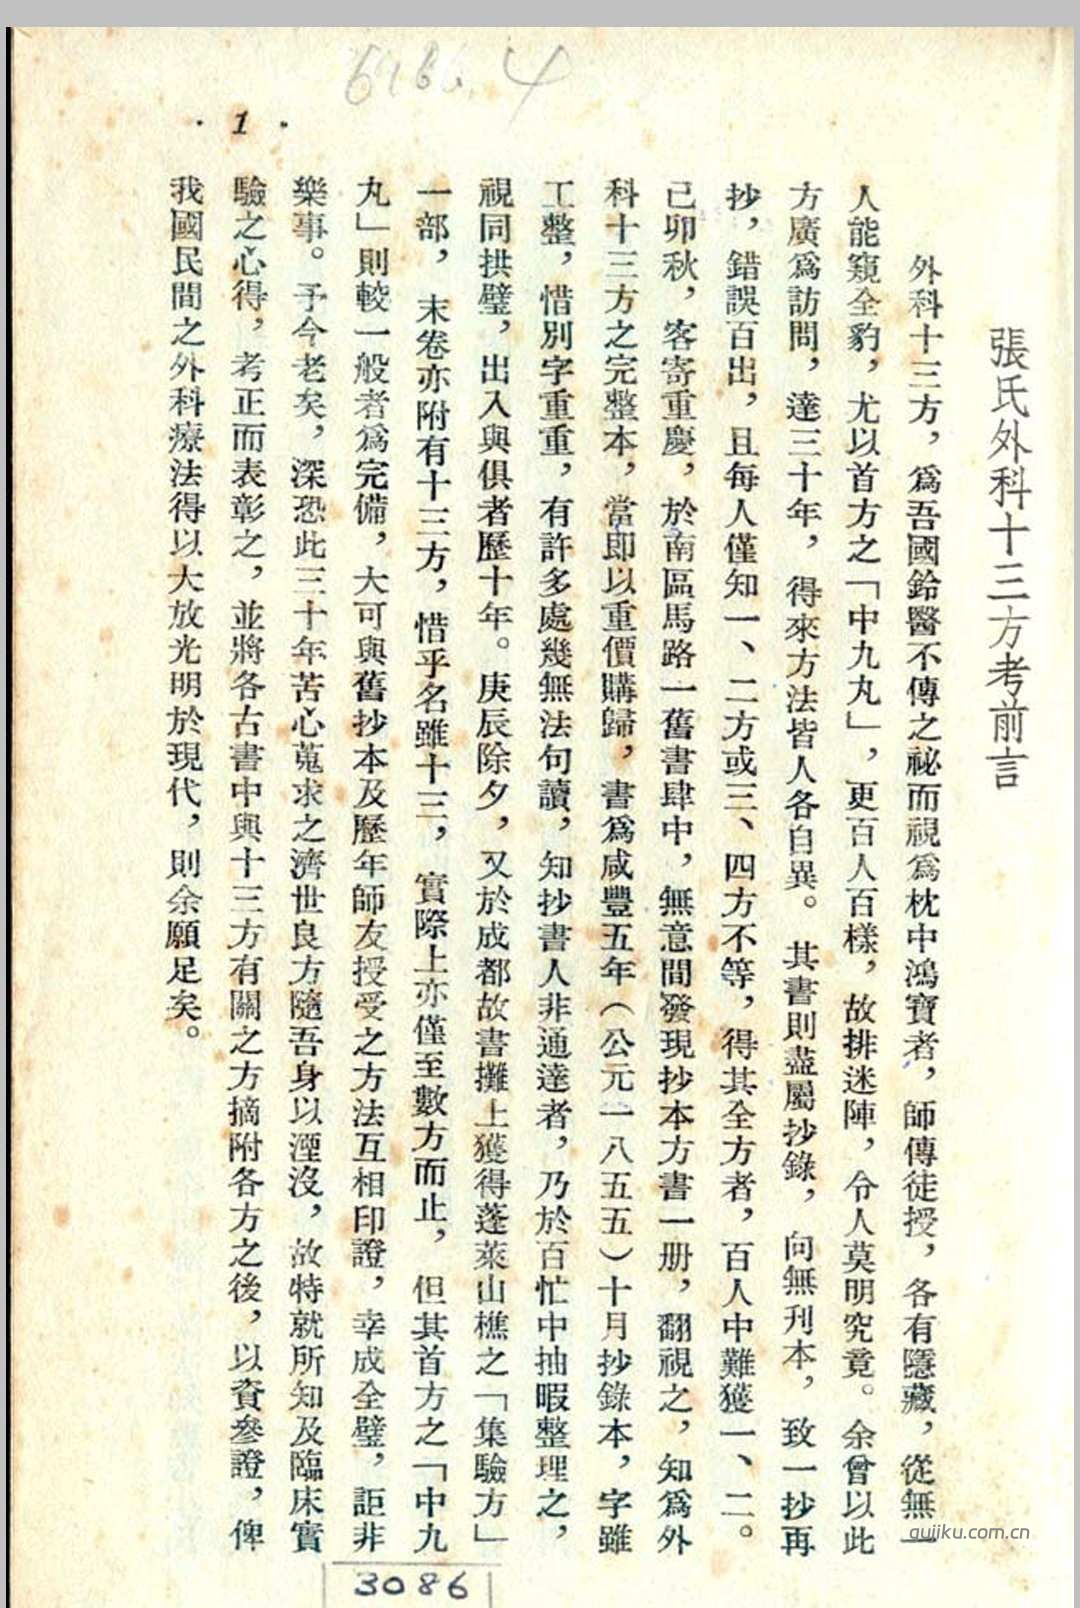 6186.4
· 1 ·
張氏外科十三方考前言
外科十三方，爲吾國鈴醫不傳之祕而視爲枕中鴻寶者，師傳徒授，各有隱藏，從無一
人能窺全豹，尤以首方之「中九丸」，更百人百樣，故排迷陣，令人莫明究竟。余曾以此
方廣爲訪問，達三十年，得來方法皆人各自異。其書則盡屬抄錄，向無刊本，致一抄再
抄，錯誤百出，且每人僅知一、二方或三、四方不等，得其全方者，百人中難獲一、二。
己卯秋，客寄重慶，於南區馬路一舊書肆中，無意間發現抄本方書一册，翻視之，知爲外
科十三方之完整本，當即以重價購歸，書爲咸豐五年（公元一八五五）十月抄錄本，字雖
工整，惜別字重重，有許多處幾無法句讀，知抄書人非通達者，乃於百忙中抽暇整理之，
視同拱璧，出入與俱者歷十年。庚辰除夕，又於成都故書攤上獲得蓬萊山樵之「集驗方」
一部，末卷亦附有十三方，惜乎名雖十三，實際上亦僅至數方而止，但其首方之「中九
丸」則較一般者爲完備，大可與舊抄本及歷年師友授受之方法互相印證，幸成全璧，詎非
樂事。予今老矣，深恐此三十年苦心蒐求之濟世良方隨吾身以湮沒，故特就所知及臨床實
驗之心得，考正而表彰之，並將各古書中與十三方有關之方摘附各方之後，以資參證，俾
我國民間之外科療法得以大放光明於現代，則余願足矣。
gujiku.com.cn
3086